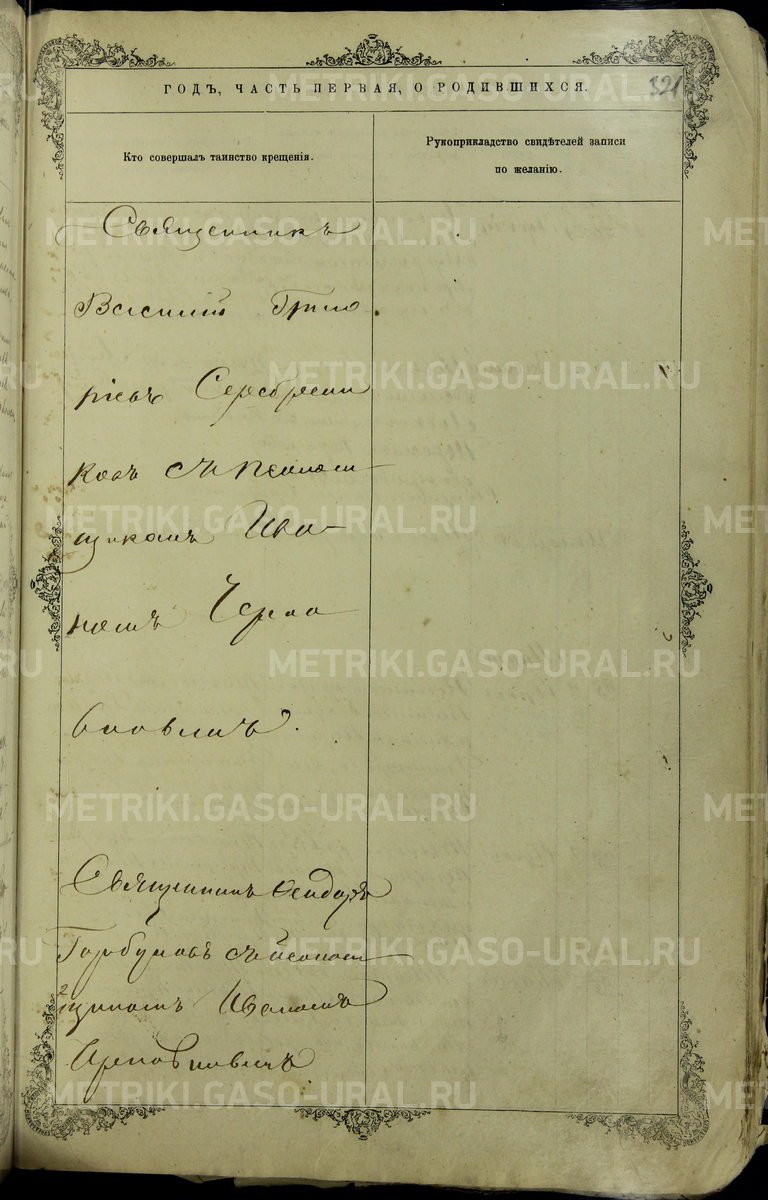 321
ГОДЪ, ЧАСТЬ ПЕРВАЯ, О РОДИВШИХСЯ.
Кто совершалъ таинство крещенія.
Рукоприкладство свидѣтелей записи
по желанію.
Священникъ
Василій Григо
ріевъ Серебрени
ковъ съ псаломъ
щикомъ Ива
номъ Черно
Священникъ Ѳеодоръ
Горбуновъ съ псалом
щикомъ Иваномъ
METRIKI.GASO-URAL.RU